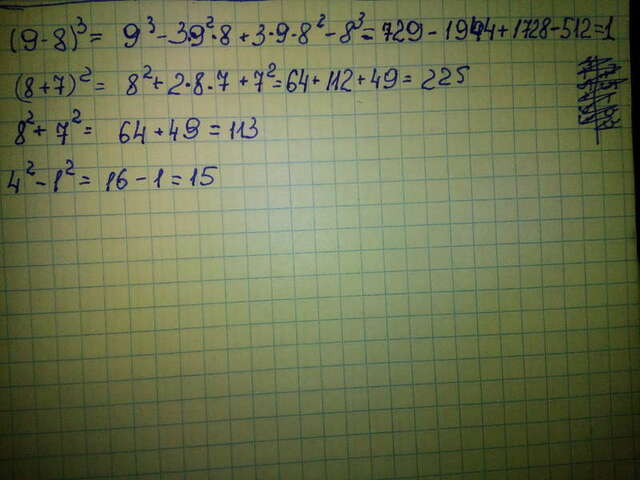 (9-8)³ = 9³ - 3·9²·8 + 3·9·8² - 8³ = 729 - 1944 + 1728 - 512 = 1
(8+7)² = 8² + 2·8·7 + 7² = 64 + 112 + 49 = 225
8² + 7² = 64 + 49 = 113
4² - 1² = 16 - 1 = 15